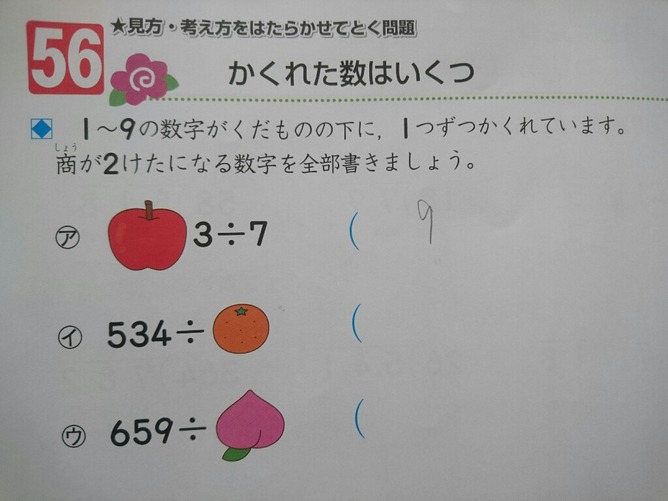 56
★見方・考え方をはたらかせてとく問題
かくれた数はいくつ
1〜9の数字がくだものの下に，1つずつかくれています。
しょう
商が2けたになる数字を全部書きましょう。
㋐ 3÷7 ( 9
㋑ 534÷ (
㋒ 659÷ (